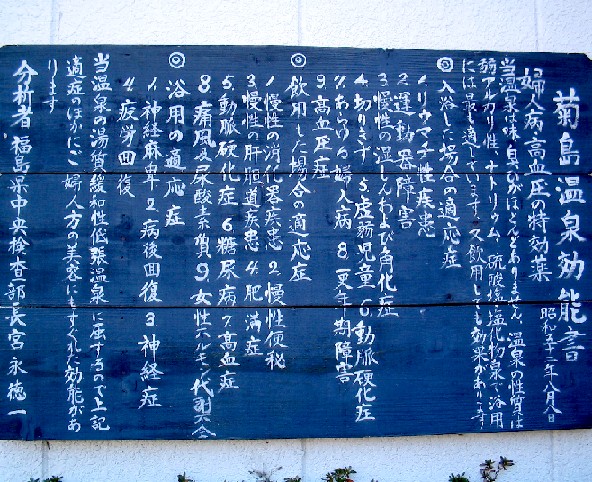 菊島温泉効能書
昭和五十二年八月八日
婦人病高血圧の特効薬
当温泉は味、臭いがほとんどありません、温泉の性質は
弱アルカリ性、ナトリウム、硫酸塩塩化物泉で浴用
には最も適しています。又飲用しても効果があります
◎入浴した場合の適応症
1.リウマチ性疾患
2.運動器障害
3.慢性の湿しんおよび角化症
4.切りきず 5.虚弱児童 6.動脈硬化症
7.あらゆる婦人病 8.更年期障害
9.高血圧症
◎飲用した場合の適応症
1.慢性の消化器疾患 2.慢性便秘
3.慢性の肝胆道疾患 4.肥満症
5.動脈硬化症 6.糖尿病 7.高血症
8.痛風及尿酸素質 9.女性ホルモン代謝不全
◎浴用の適応症
1.神経麻卑 2.病後回復 3.神経症
4.疲労回復
当温泉の湯質緩和性低張温泉に属するので上記
適症のほかにご婦人方の美容にもすぐれた効能があ
ります
分析者 福島県中央検査部長 宮永徳一